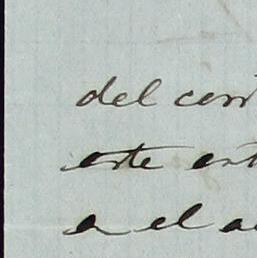 del corr
este est
a el a